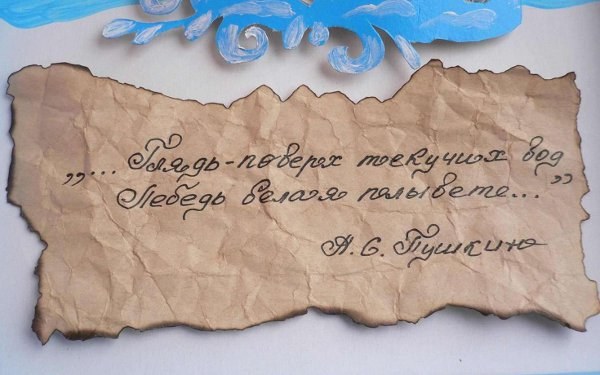 „... Глядь-поверх текучих вод
Лебедь белая плывет..."
А. С. Пушкин